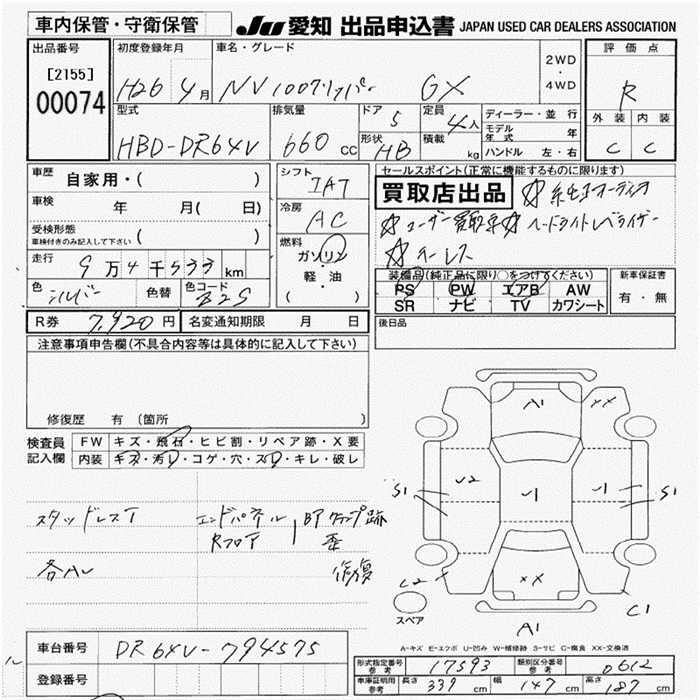 車内保管・守衛保管 JU 愛知 出品申込書 JAPAN USED CAR DEALERS ASSOCIATION
出品番号 初度登録年月 車名・グレード 2WD・4WD 評価点
[2155]
00074 H26 4月 NV100クリッパー GX R
型式 排気量 ドア 5 定員 4人 ディーラー・並行 外装 内装
HBD-DR64V 660 cc 形状 HB 積載 kg モデル年式 年 C C
ハンドル 左・右
車歴 自家用・( ) シフト IAT セールスポイント(正常に機能するものに限ります)
車検 年 月( 日) 冷房 AC 買取店出品 ☆社外オーディオ
受検形態 ( ) ☆ユーザー買取車☆ヘッドライトレベライザー
車検付きのみ記入して下さい 燃料 ガソリン ☆キーレス
走行 9万4千533km 軽・油
( )
装備品(純正品に限り○をつけてください) 新車保証書
色 シルバー 色替 色コード Z2S PS PW エアB AW 有・無
SR ナビ TV カワシート
R券 7,920円 名変通知期限 月 日 後日品
注意事項申告欄(不具合内容等は具体的に記入して下さい)
修復歴 有 (箇所 )
検査員 FW キズ・飛石・ヒビ割・リペア跡・X要
記入欄 内装 キズ・汚レ・コゲ・穴・スレ・キレ・破レ
A1 XX
U2 U1 U1
S1 S1
スタッドレスT エンドパネル BPクランプ跡
Rフロア 歪
各AU 修復
XX
U2 C1
スペア A1
A-キズ E-エクボ U-凹み W-補修跡 S-サビ C-腐食 XX-交換済
車台番号 DR64V-794575 形式指定番号 参考 17593 類別区分番号 参考 0612
登録番号 車庫証明用 参考 長さ 339 cm 幅 147 cm 高さ 187 cm